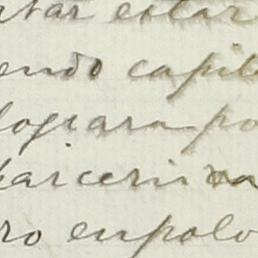 rtar estar
endo capil
lograra po
parcerin na
ro enpolo